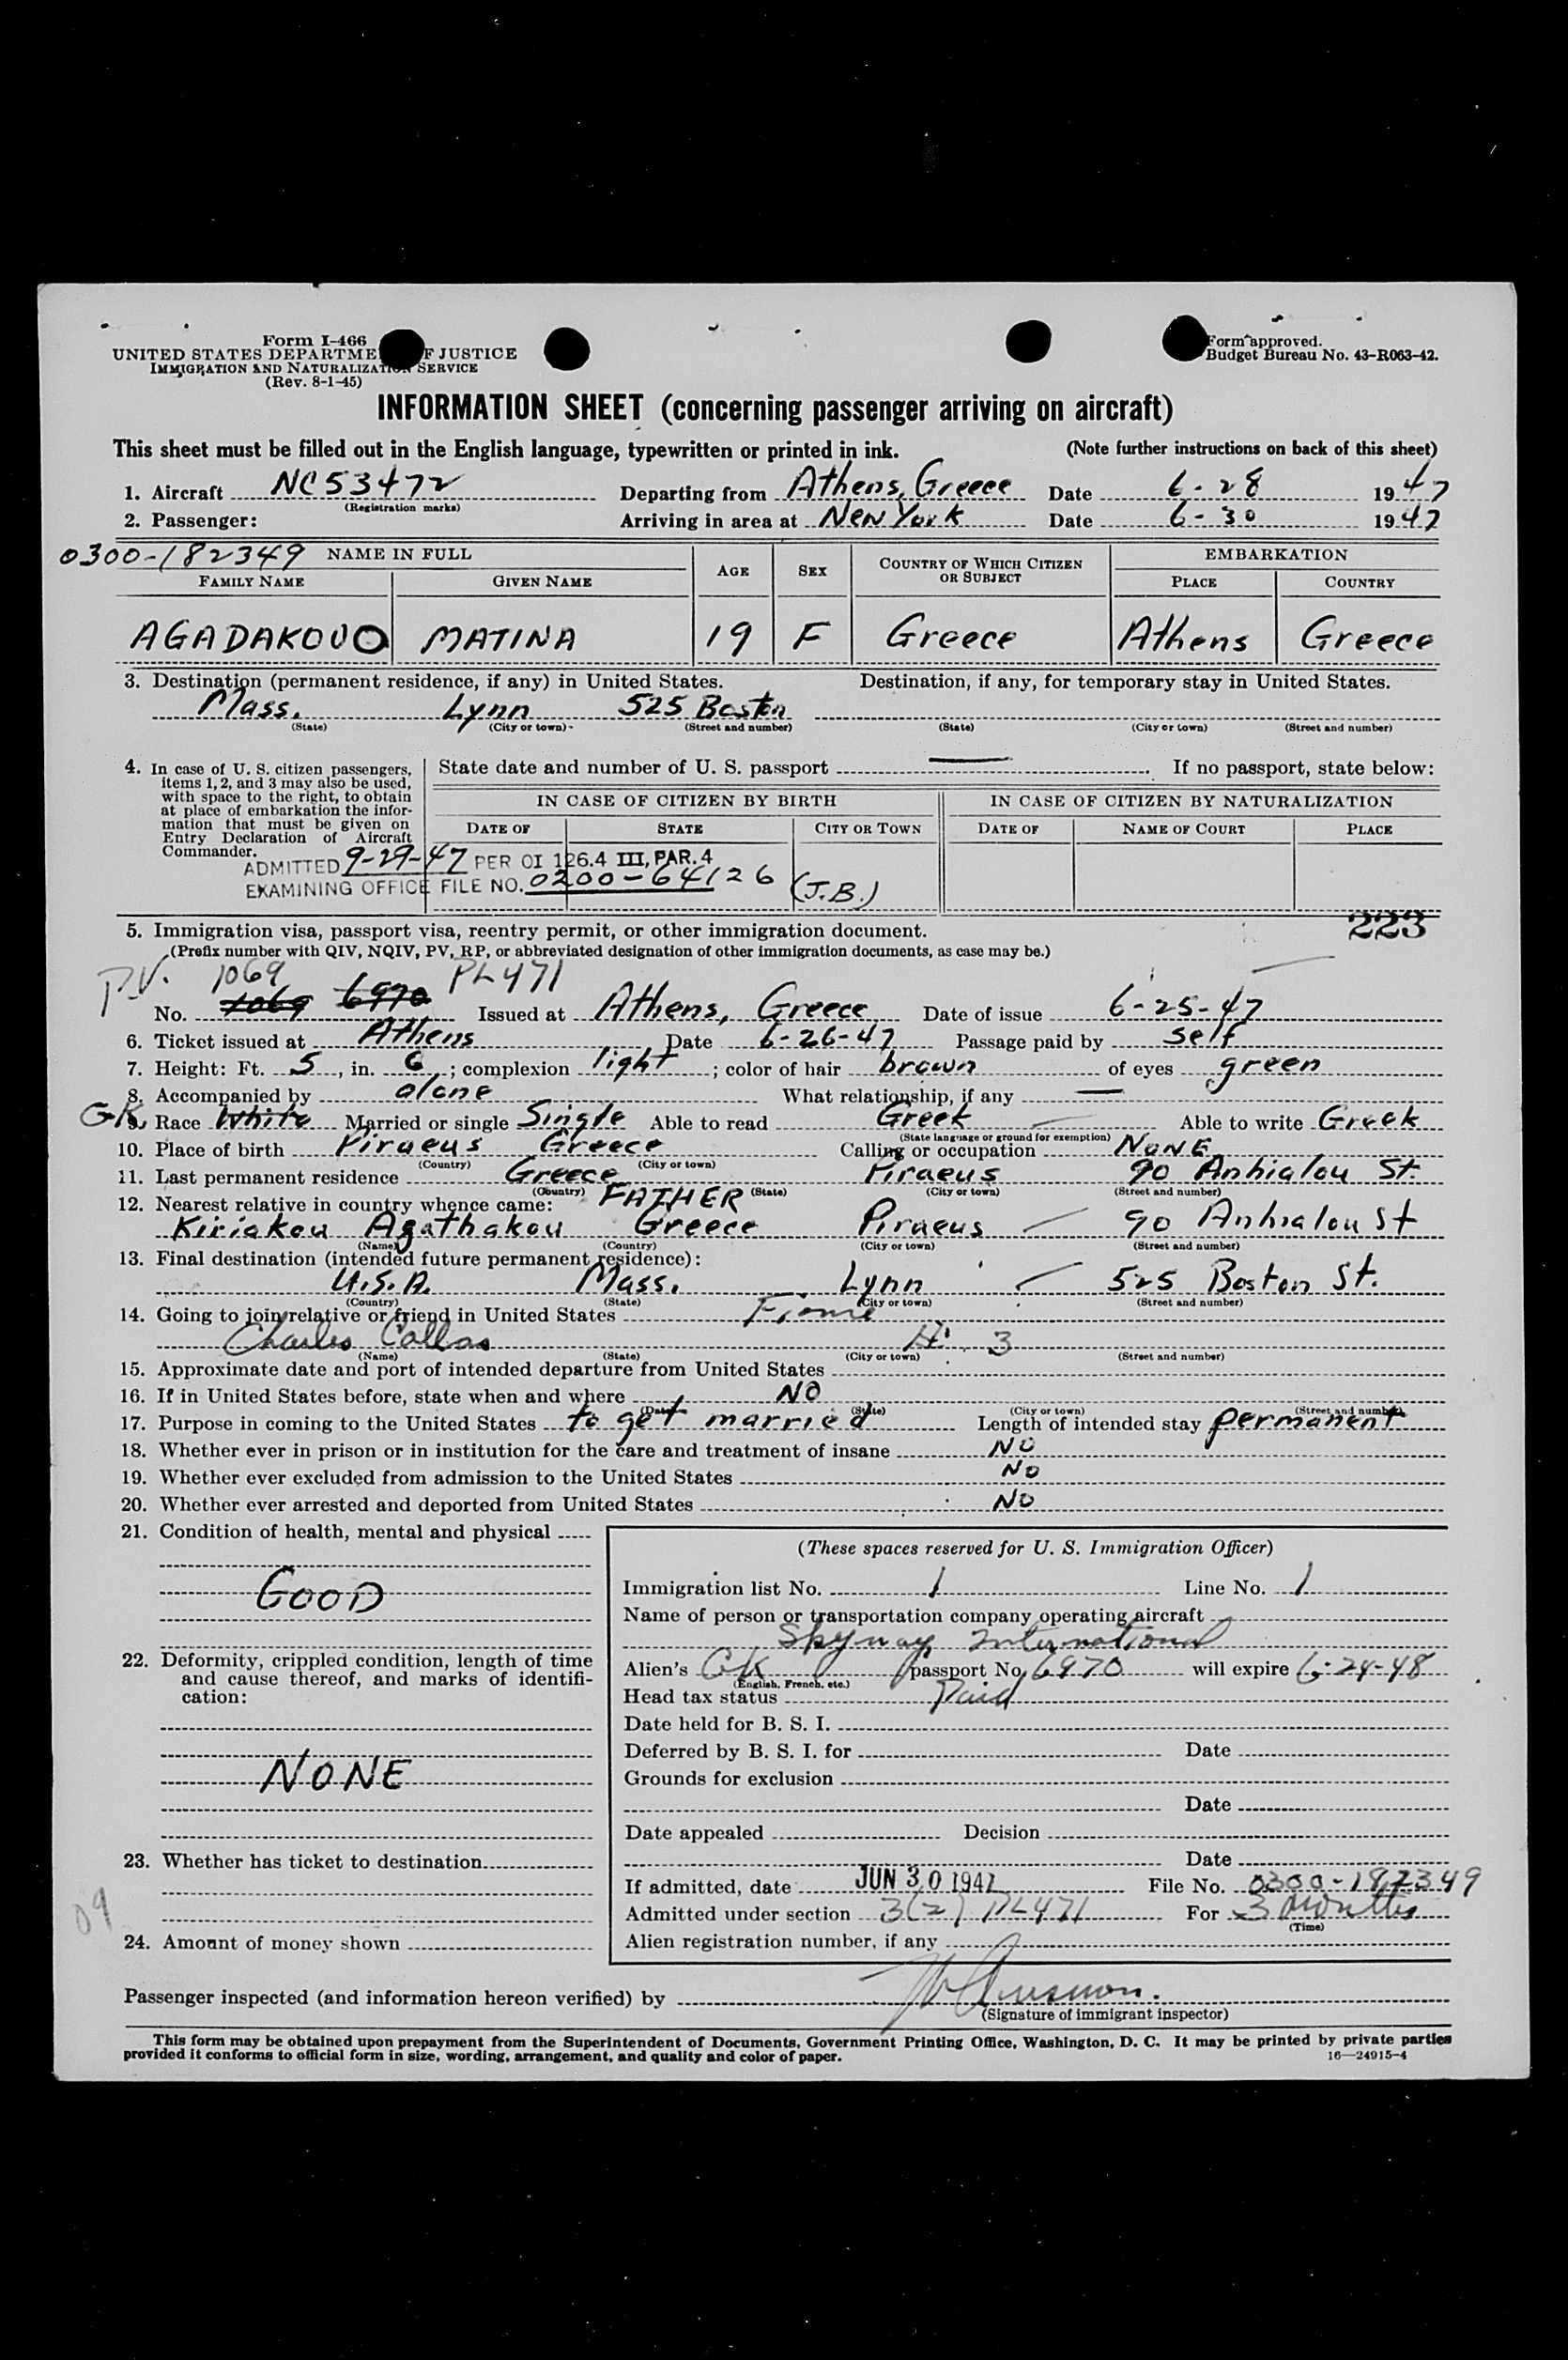 Form I-466
UNITED STATES DEPARTMENT OF JUSTICE
IMMIGRATION AND NATURALIZATION SERVICE
(Rev. 8-1-45)
Form approved.
Budget Bureau No. 43-R063-42.
INFORMATION SHEET (concerning passenger arriving on aircraft)
This sheet must be filled out in the English language, typewritten or printed in ink. (Note further instructions on back of this sheet)
1. Aircraft NC53472 Departing from Athens, Greece Date 6-28 1947
(Registration marks)
2. Passenger: Arriving in area at New York Date 6-30 1947
0300-182349 NAME IN FULL AGE SEX COUNTRY OF WHICH CITIZEN OR SUBJECT EMBARKATION
FAMILY NAME GIVEN NAME PLACE COUNTRY
AGADAKOUO MATINA 19 F Greece Athens Greece
3. Destination (permanent residence, if any) in United States. Destination, if any, for temporary stay in United States.
Mass. Lynn 525 Boston
(State) (City or town) (Street and number) (State) (City or town) (Street and number)
4. In case of U. S. citizen passengers, items 1, 2, and 3 may also be used, with space to the right, to obtain at place of embarkation the information that must be given on Entry Declaration of Aircraft Commander.
State date and number of U. S. passport — If no passport, state below:
IN CASE OF CITIZEN BY BIRTH IN CASE OF CITIZEN BY NATURALIZATION
DATE OF STATE CITY OR TOWN DATE OF NAME OF COURT PLACE
ADMITTED 9-29-47 PER OI 126.4 III, PAR. 4
EXAMINING OFFICE FILE NO. 0200-64126 (J.B.)
223
5. Immigration visa, passport visa, reentry permit, or other immigration document.
(Prefix number with QIV, NQIV, PV, RP, or abbreviated designation of other immigration documents, as case may be.)
P.V. 1069 PL471
No. 1069 6970 Issued at Athens, Greece Date of issue 6-25-47
6. Ticket issued at Athens Date 6-26-47 Passage paid by self
7. Height: Ft. 5, in. 6; complexion light; color of hair brown of eyes green
8. Accompanied by alone What relationship, if any —
GK 9. Race White Married or single Single Able to read Greek Able to write Greek
(State language or ground for exemption)
10. Place of birth Piraeus Greece Calling or occupation NONE
(Country) (City or town)
11. Last permanent residence Greece Piraeus 90 Anhialou St.
(Country) (State) (City or town) (Street and number)
12. Nearest relative in country whence came: FATHER
Kiriakou Agathakou Greece Piraeus 90 Anhialou St
(Name) (Country) (City or town) (Street and number)
13. Final destination (intended future permanent residence):
U.S.A. Mass. Lynn 525 Boston St.
(Country) (State) (City or town) (Street and number)
14. Going to join relative or friend in United States
Charles Callas
(Name) (State) (City or town) (Street and number)
15. Approximate date and port of intended departure from United States
16. If in United States before, state when and where NO
(Date) (State) (City or town) (Street and number)
17. Purpose in coming to the United States to get married Length of intended stay permanent
18. Whether ever in prison or in institution for the care and treatment of insane NO
19. Whether ever excluded from admission to the United States NO
20. Whether ever arrested and deported from United States NO
21. Condition of health, mental and physical
GOOD
22. Deformity, crippled condition, length of time and cause thereof, and marks of identification:
NONE
23. Whether has ticket to destination
09
24. Amount of money shown
(These spaces reserved for U. S. Immigration Officer)
Immigration list No. 1 Line No. 1
Name of person or transportation company operating aircraft
Skyway International
Alien's GK passport No. 6970 will expire 6-24-48
(English, French, etc.)
Head tax status Paid
Date held for B. S. I.
Deferred by B. S. I. for Date
Grounds for exclusion
Date
Date appealed Decision
Date
If admitted, date JUN 30 1947 File No. 0300-182349
Admitted under section 3(2) PL471 For 3 months
(Time)
Alien registration number, if any
Passenger inspected (and information hereon verified) by
(Signature of immigrant inspector)
This form may be obtained upon prepayment from the Superintendent of Documents, Government Printing Office, Washington, D. C. It may be printed by private parties
provided it conforms to official form in size, wording, arrangement, and quality and color of paper. 16—24915-4